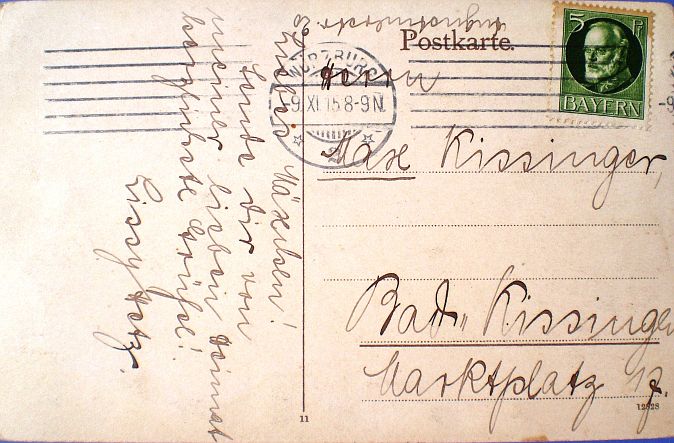 Postkarte.
5 Pf
BAYERN
WÜRZBURG
-9.XI.15.8-9N.
2
Herrn
Max Kissinger,
Bad Kissingen
Marktplatz 17.
Liebes Mäxchen!
Sende dir von
meiner lieben Heimat
herzlichste Grüße!
Lissy
11
12828